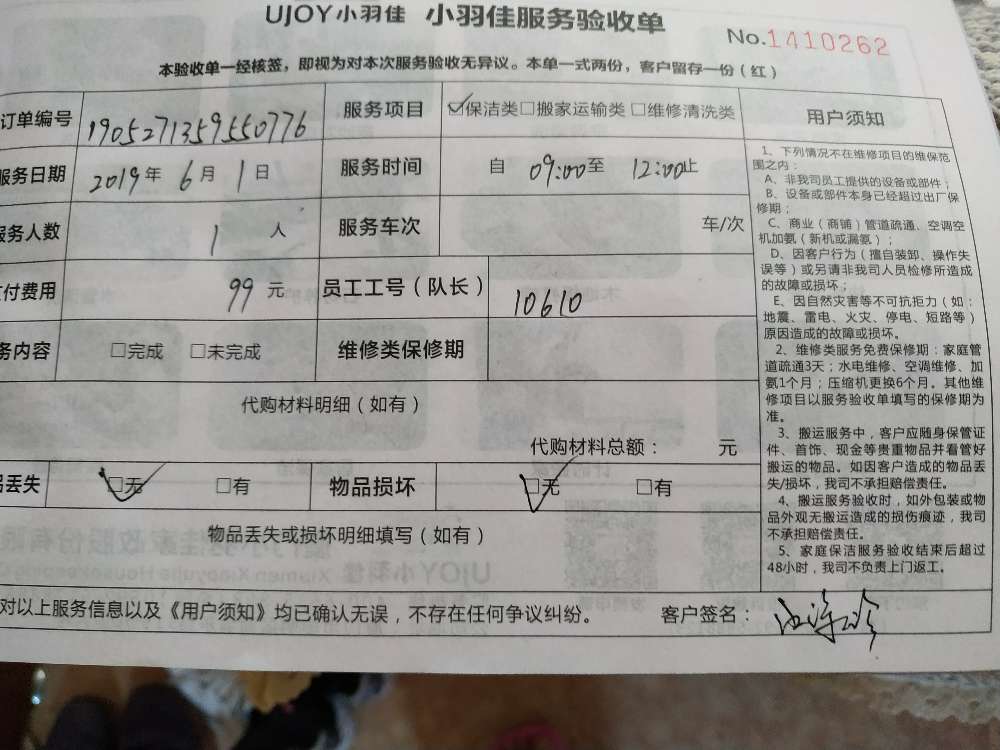 UJOY小羽佳 小羽佳服务验收单
No.1410262
本验收单一经核签，即视为对本次服务验收无异议。本单一式两份，客户留存一份（红）
订单编号 1905271359550776 服务项目 ☑保洁类□搬家运输类□维修清洗类
服务日期 2019年 6月 1日 服务时间 自 09:00至 12:00止
务人数 1 人 服务车次 车/次
付费用 99 元 员工工号（队长） 10610
务内容 □完成 □未完成 维修类保修期
代购材料明细（如有）
代购材料总额： 元
丢失 ☑无 □有 物品损坏 ☑无 □有
物品丢失或损坏明细填写（如有）
对以上服务信息以及《用户须知》均已确认无误，不存在任何争议纠纷。 客户签名：
用户须知
1、下列情况不在维修项目的维保范
围之内：
A、非我司员工提供的设备或部件；
B、设备或部件本身已经超过出厂保
修期；
C、商业（商铺）管道疏通、空调空
机加氨（新机或漏氨）；
D、因客户行为（擅自装卸、操作失
误等）或另请非我司人员检修所造成
的故障或损坏；
E、因自然灾害等不可抗拒力（如：
地震、雷电、火灾、停电、短路等）
原因造成的故障或损坏。
2、维修类服务免费保修期：家庭管
道疏通3天；水电维修、空调维修、加
氨1个月；压缩机更换6个月。其他维
修项目以服务验收单填写的保修期为
准。
3、搬运服务中，客户应随身保管证
件、首饰、现金等贵重物品并看管好
搬运的物品。如因客户造成的物品丢
失/损坏，我司不承担赔偿责任。
4、搬运服务验收时，如外包装或物
品外观无搬运造成的损伤痕迹，我司
不承担赔偿责任。
5、家庭保洁服务验收结束后超过
48小时，我司不负责上门返工。